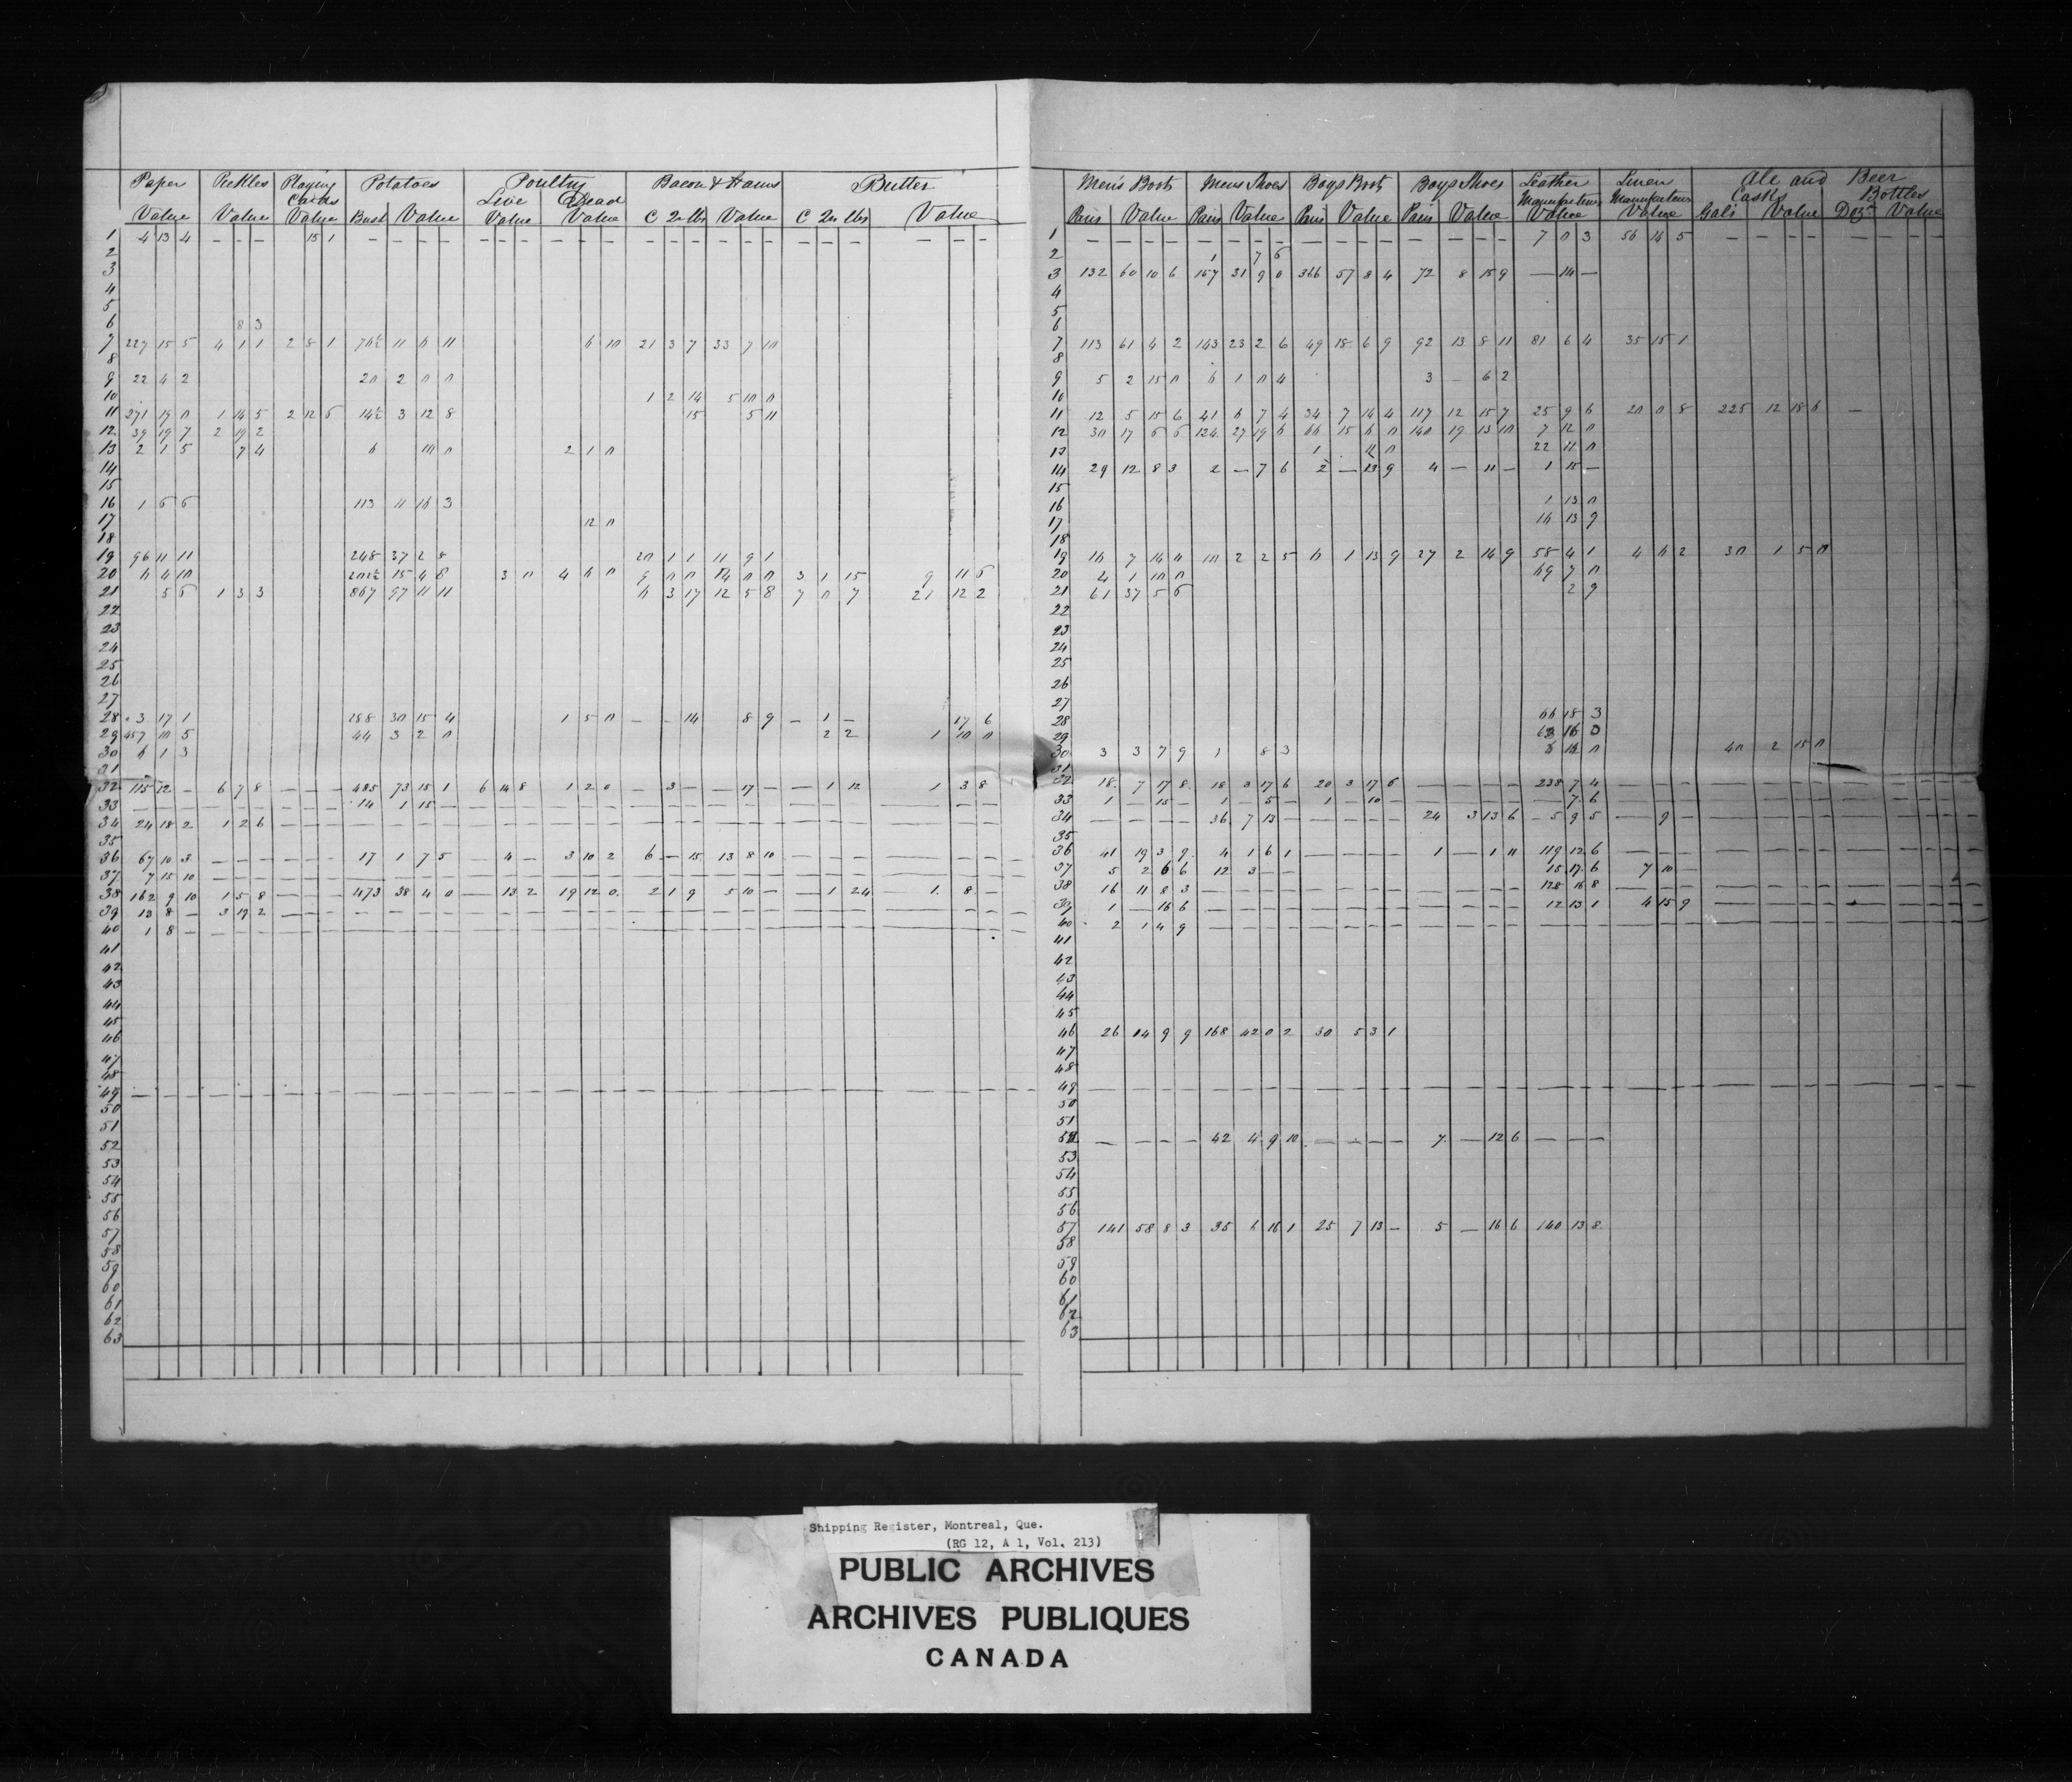 Paper Pickles Playing Cards Potatoes Poultry Bacon & Hams Butter
Live Dead
Value Value Value Bush Value Value Value C 2rs lbs Value C 2rs lbs Value
1 4 13 4 — — — 15 1 — — — — — — — — — — — — — — — — — — — — — —
2
3
4
5
6 8 3
7 227 15 5 4 1 1 2 8 1 11 6 11 6 10 21 3 7 33 7 10
8
9 22 4 2 20 2 0 0
10 1 2 14 5 10 0
11 271 19 0 1 14 5 2 12 6 14½ 3 12 8 15 5 11
12 39 19 7 2 19 2
13 2 1 5 7 4 6 10 0 2 1 0
14
15
16 1 6 6 113 11 16 3
17 12 0
18
19 96 11 11 248 37 2 8 20 1 1 11 9 1
20 6 4 10 202½ 15 4 8 3 0 4 6 0 9 0 0 14 0 0 3 1 15 9 11 6
21 5 6 1 3 3 867 97 11 11 6 3 17 12 5 8 7 0 7 21 12 2
22
23
24
25
26
27
28 3 17 1 288 30 15 4 1 5 0 — — 14 8 9 — 1 — 17 6
29 457 10 5 44 3 2 0 2 2 1 10 0
30 6 1 3
31
32 115 12 — 6 7 8 — — — 485 73 15 1 6 14 8 1 2 0 — 3 — — 17 — — 1 12 1 3 8
33 — — — — — — — — — 14 1 15 — — — — — — — — — — — — — — — — — — —
34 24 18 2 1 2 6 — — — — — — — — — — — — — — — — — — — — — — — —
35
36 67 10 3 — — — — — — 17 1 7 5 — 4 — 3 10 2 6 — 15 13 8 10 — — — — — —
37 7 15 10 — — — — — — — — — — — — — — — — — — — — — — — — — — —
38 162 9 10 1 5 8 — — — 473 38 4 0 — 13 2 19 12 0 2 1 9 5 10 — — 1 24 1 8 —
39 13 8 — 3 19 2 — — — — — — — — — — — — — — — — — — — — — — — —
40 1 8 — — — — — — — — — — — — — — — — — — — — — — — — — — — —
41
42
43
44
45
46
47
48
49 — — — — — — — — — — — — — — — — — — — — — — — — — — — — — —
50
51
52
53
54
55
56
57
58
59
60
61
62
63
Men's Boots Mens Shoes Boys Boots Boys Shoes Leather Linen Ale and Beer
Manufactures Manufactures Casks Bottles
Pairs Value Pairs Value Pairs Value Pairs Value Value Value Gals Value Dozn Value
1 — — — — — — — — — — — — — — — — 7 0 3 56 14 5 — — — — — — — —
2 1 7 6
3 132 60 10 6 167 31 9 0 366 57 8 4 72 8 15 9 — 14 —
4
5
6
7 113 61 4 2 143 23 2 6 49 18 6 9 92 13 8 11 81 6 4 35 15 1
8
9 5 2 15 0 6 1 0 4 3 — 6 2
10
11 12 5 15 6 41 6 7 4 34 7 14 4 117 12 15 7 25 9 6 20 0 8 225 12 18 6 —
12 30 17 6 6 124 27 19 6 66 15 6 0 140 19 13 10 7 12 0
13 1 0 22 11 0
14 29 12 8 3 2 — 7 6 2 — 13 9 4 — 11 — 1 15 —
15
16 1 13 0
17 14 13 9
18
19 14 7 14 4 10 2 2 5 6 1 13 9 27 2 14 9 58 4 1 4 6 2 30 1 5 0
20 4 1 10 0 69 7 0
21 61 37 5 6 2 9
22
23
24
25
26
27
28 66 18 3
29 63 16 0
30 3 3 7 9 1 8 3 14 0 40 2 15 0
31
32 18 7 17 8 18 3 17 6 20 3 17 6 — — — — 238 7 4 — — — — — — — — — — —
33 1 — 15 — 1 — 5 — 1 — 10 — — — — — — 7 6 — — — — — — — — — — —
34 — — — — 36 7 13 — — — — — 24 3 13 6 5 9 5 — 9 —
35
36 41 19 3 9 4 1 6 1 — — — — 1 — 1 11 119 12 6 — — —
37 5 2 6 6 12 3 — — 15 17 6 7 10 —
38 16 11 8 3 — — — — — — — — — — — — 128 16 8 — — — — — — — — — — —
39 1 — 16 6 — — — — — — — — — — — — 12 13 1 4 15 9 — — — — — — — —
40 2 1 4 9 — — — — — — — — — — — — — — — — — — — — — — — — — —
41
42
43
44
45
46 26 14 9 9 168 42 0 2 30 5 3 1
47
48
49 — — — — — — — — — — — — — — — — — — — — — — — — — — — — — —
50
51
52 — — — — 42 4 9 10 — — — — 7 — 12 6 — — —
53
54
55
56
57 141 58 8 3 35 6 16 1 25 7 13 — 5 — 16 6 140 13 8
58
59
60
61
62
63
Shipping Register, Montreal, Que.
(RG 12, A 1, Vol. 213)
PUBLIC ARCHIVES
ARCHIVES PUBLIQUES
CANADA